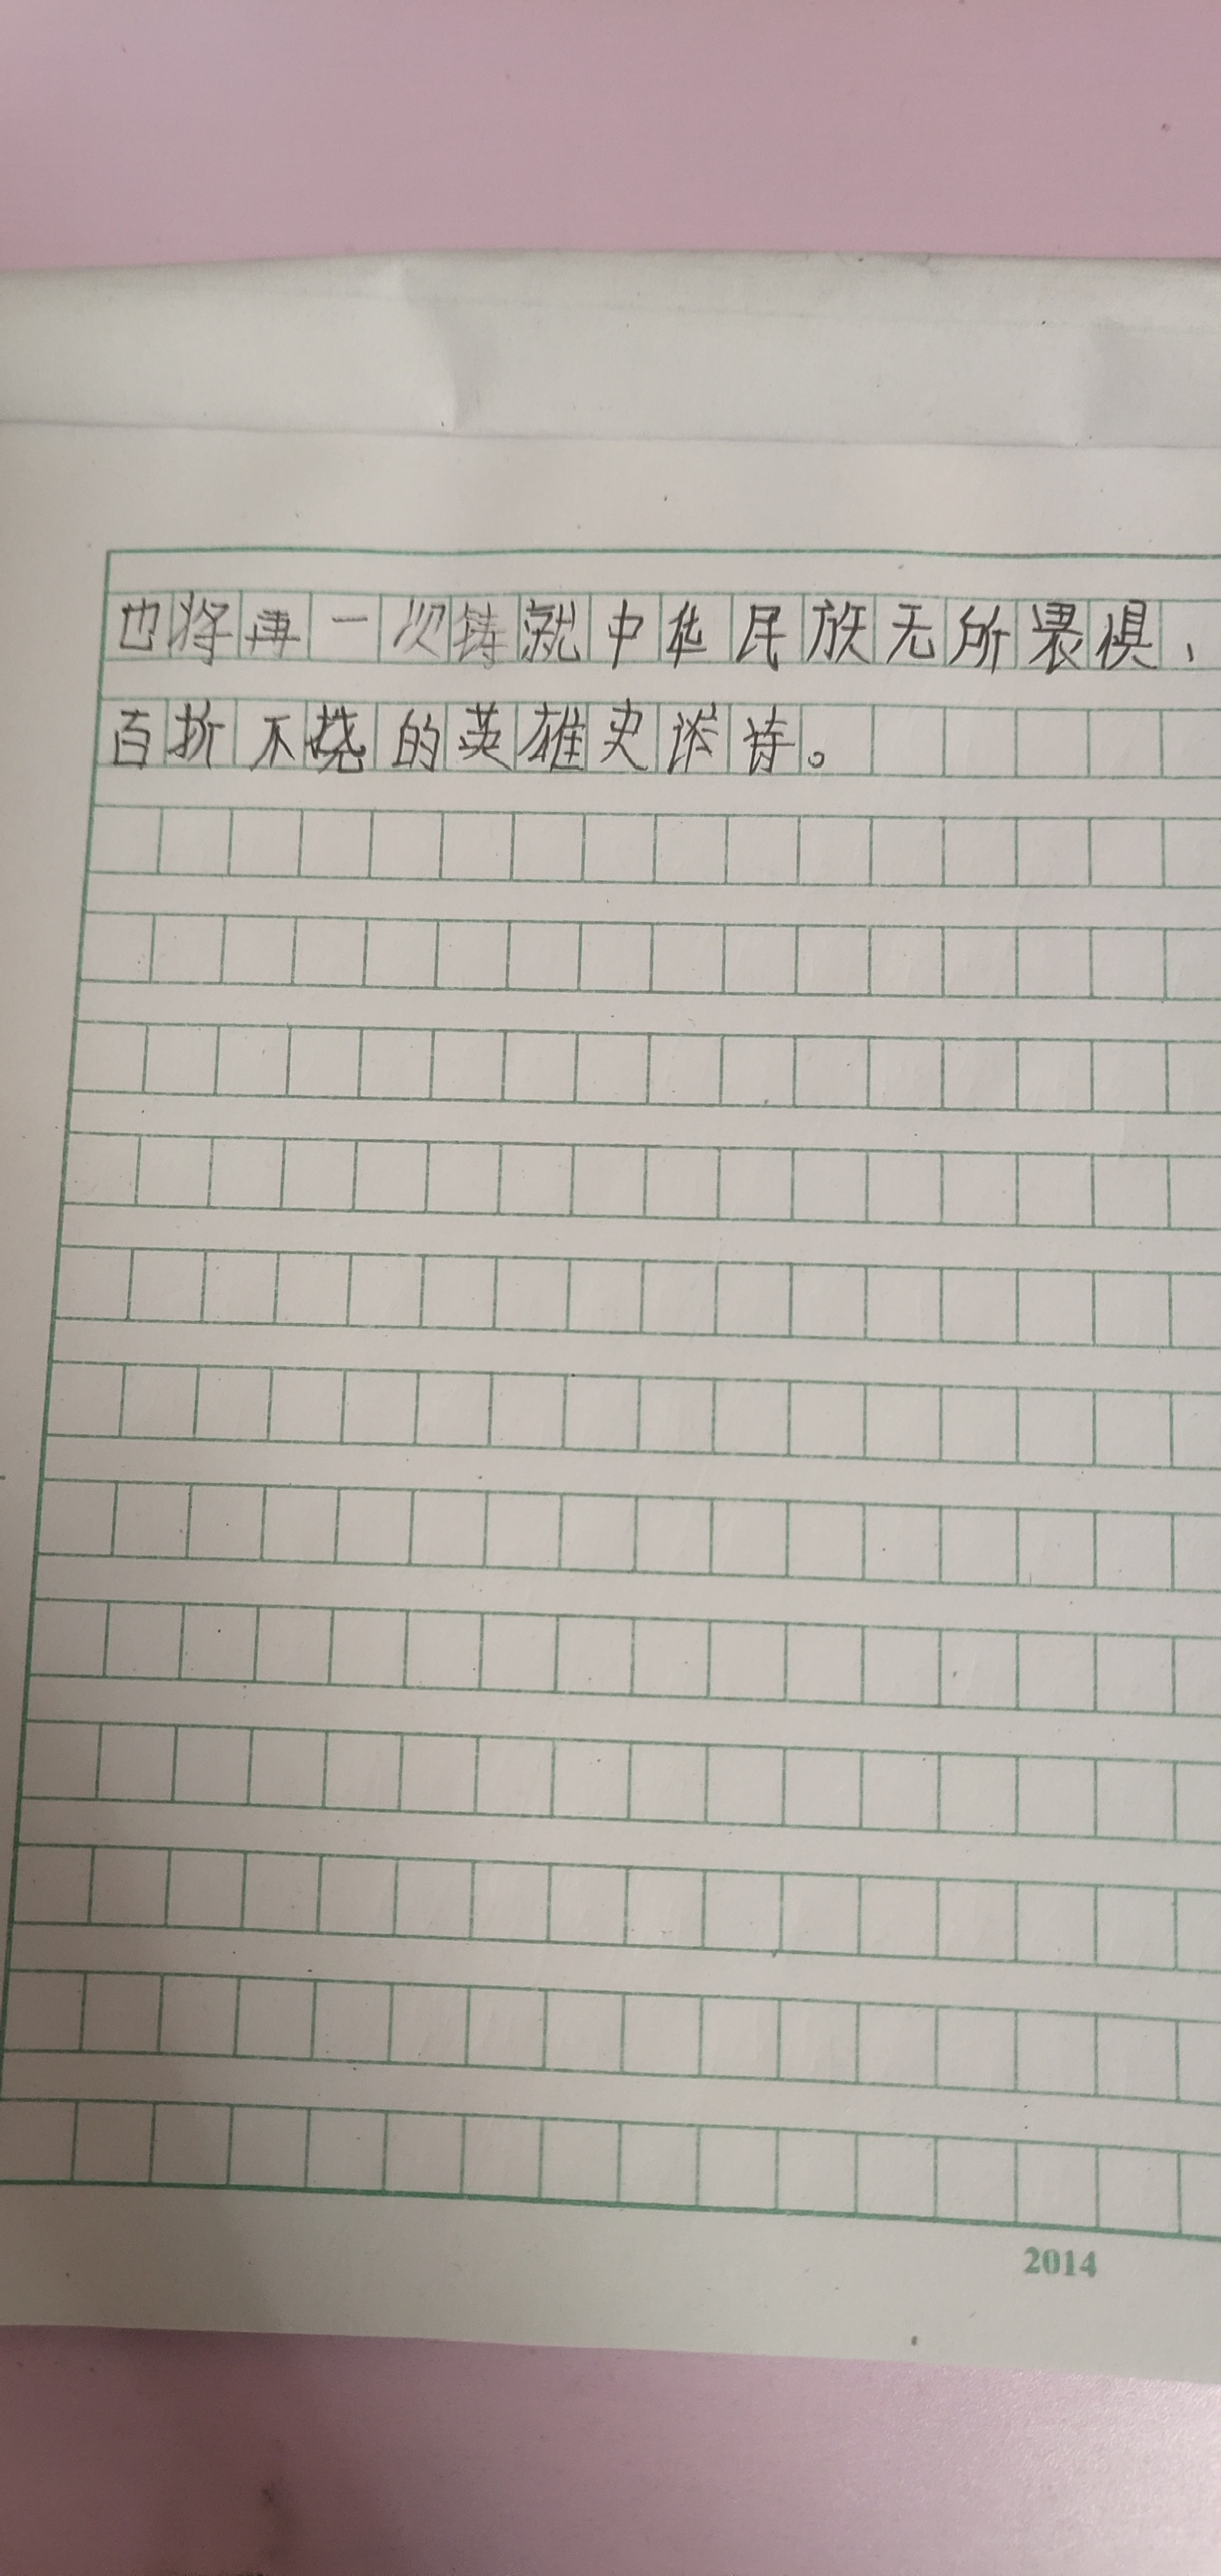 也将再一次铸就中华民族无所畏惧、
百折不挠的英雄史诗。
2014